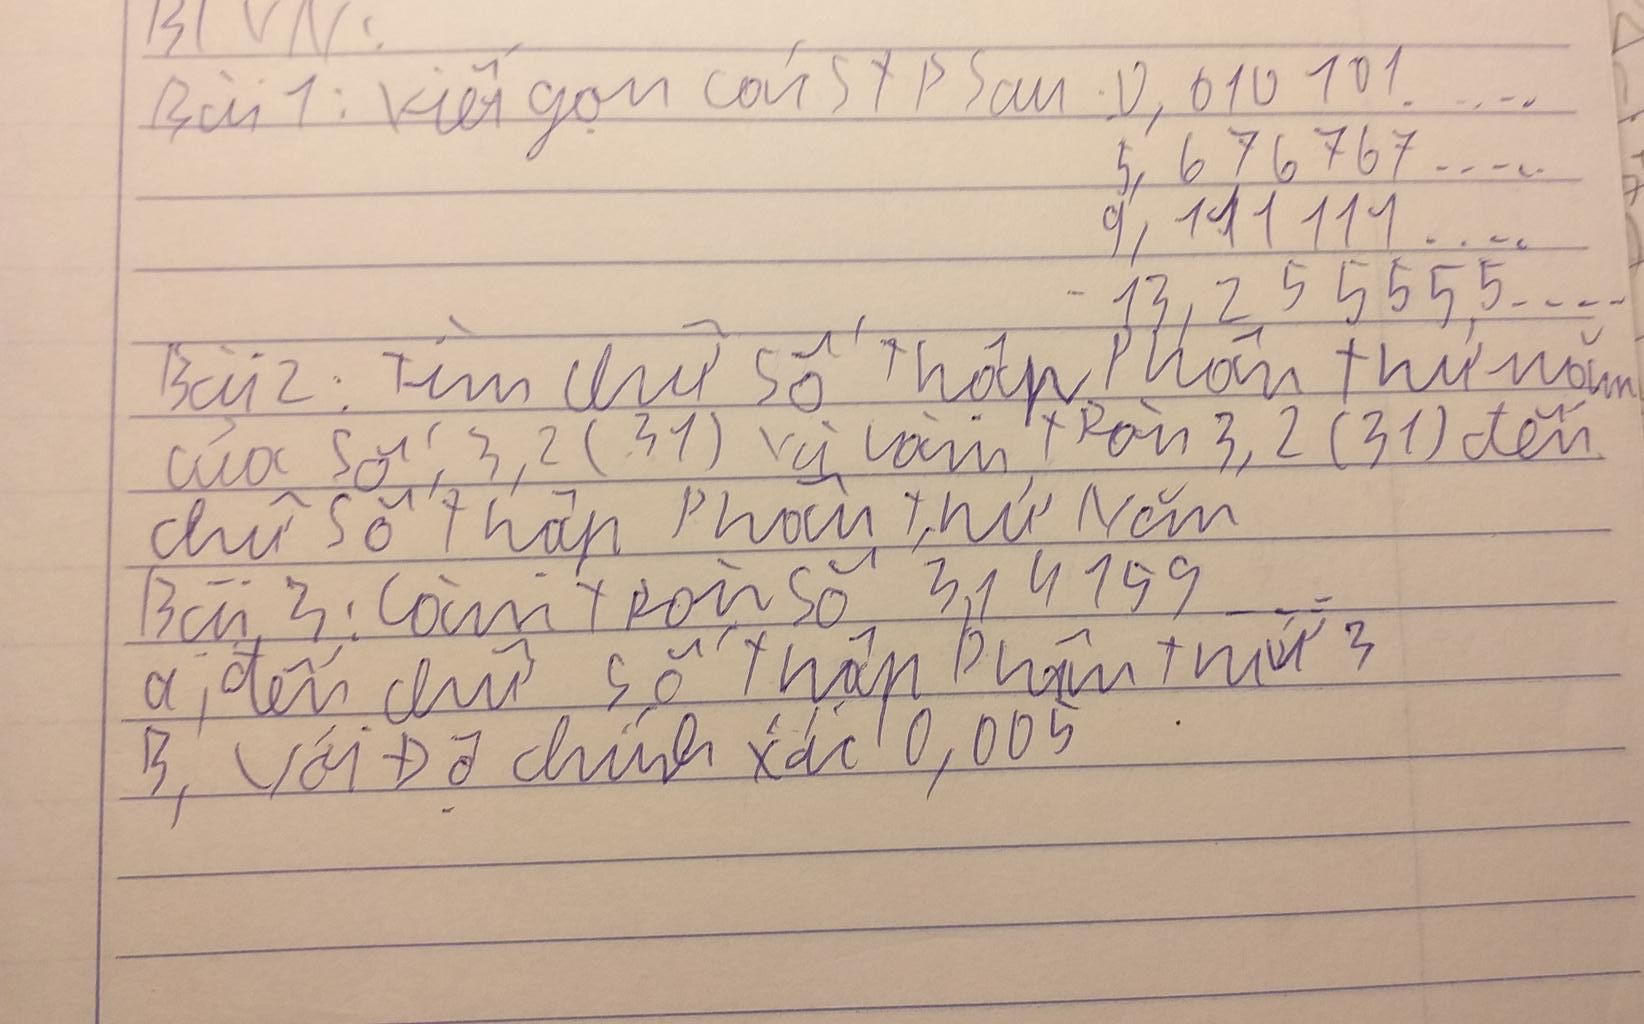 BTVN:
Bài 1: Viết gọn các STP sau: 0, 010 101.....
5, 6 7 6 7 6 7 .....
9, 111 111 .....
- 13, 2 5 5 5 5 5 ....
Bài 2: Tìm chữ số thập phân thứ năm
của số 3, 2 (31) và làm tròn 3, 2 (31) đến
chữ số thập phân thứ Năm
Bài 3: Làm tròn số 3,14159 ....
a, đến chữ số thập phân thứ 3
B, Với Độ chính xác 0,005